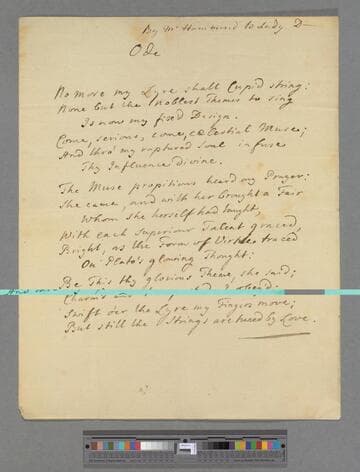 By Mr Hammond to Lady D—
Ode
No more my Lyre shall Cupid string:
None but the noblest Themes to sing
Is now my fix'd Design.
Come, serious, come, celestial Muse;
And thro' my raptured Soul infuse
Thy Influence divine.
The Muse propitious heard my Prayer:
She came, and with her brought a Fair
Whom she herself had taught,
With each superiour Talent graced,
Bright, as the Form of Virtue traced
On Plato's glowing Thought:
Be This thy glorious Theme, she said;
Charm'd
Swift o'er the Lyre my Fingers move;
But still the Strings are tuned by Love.